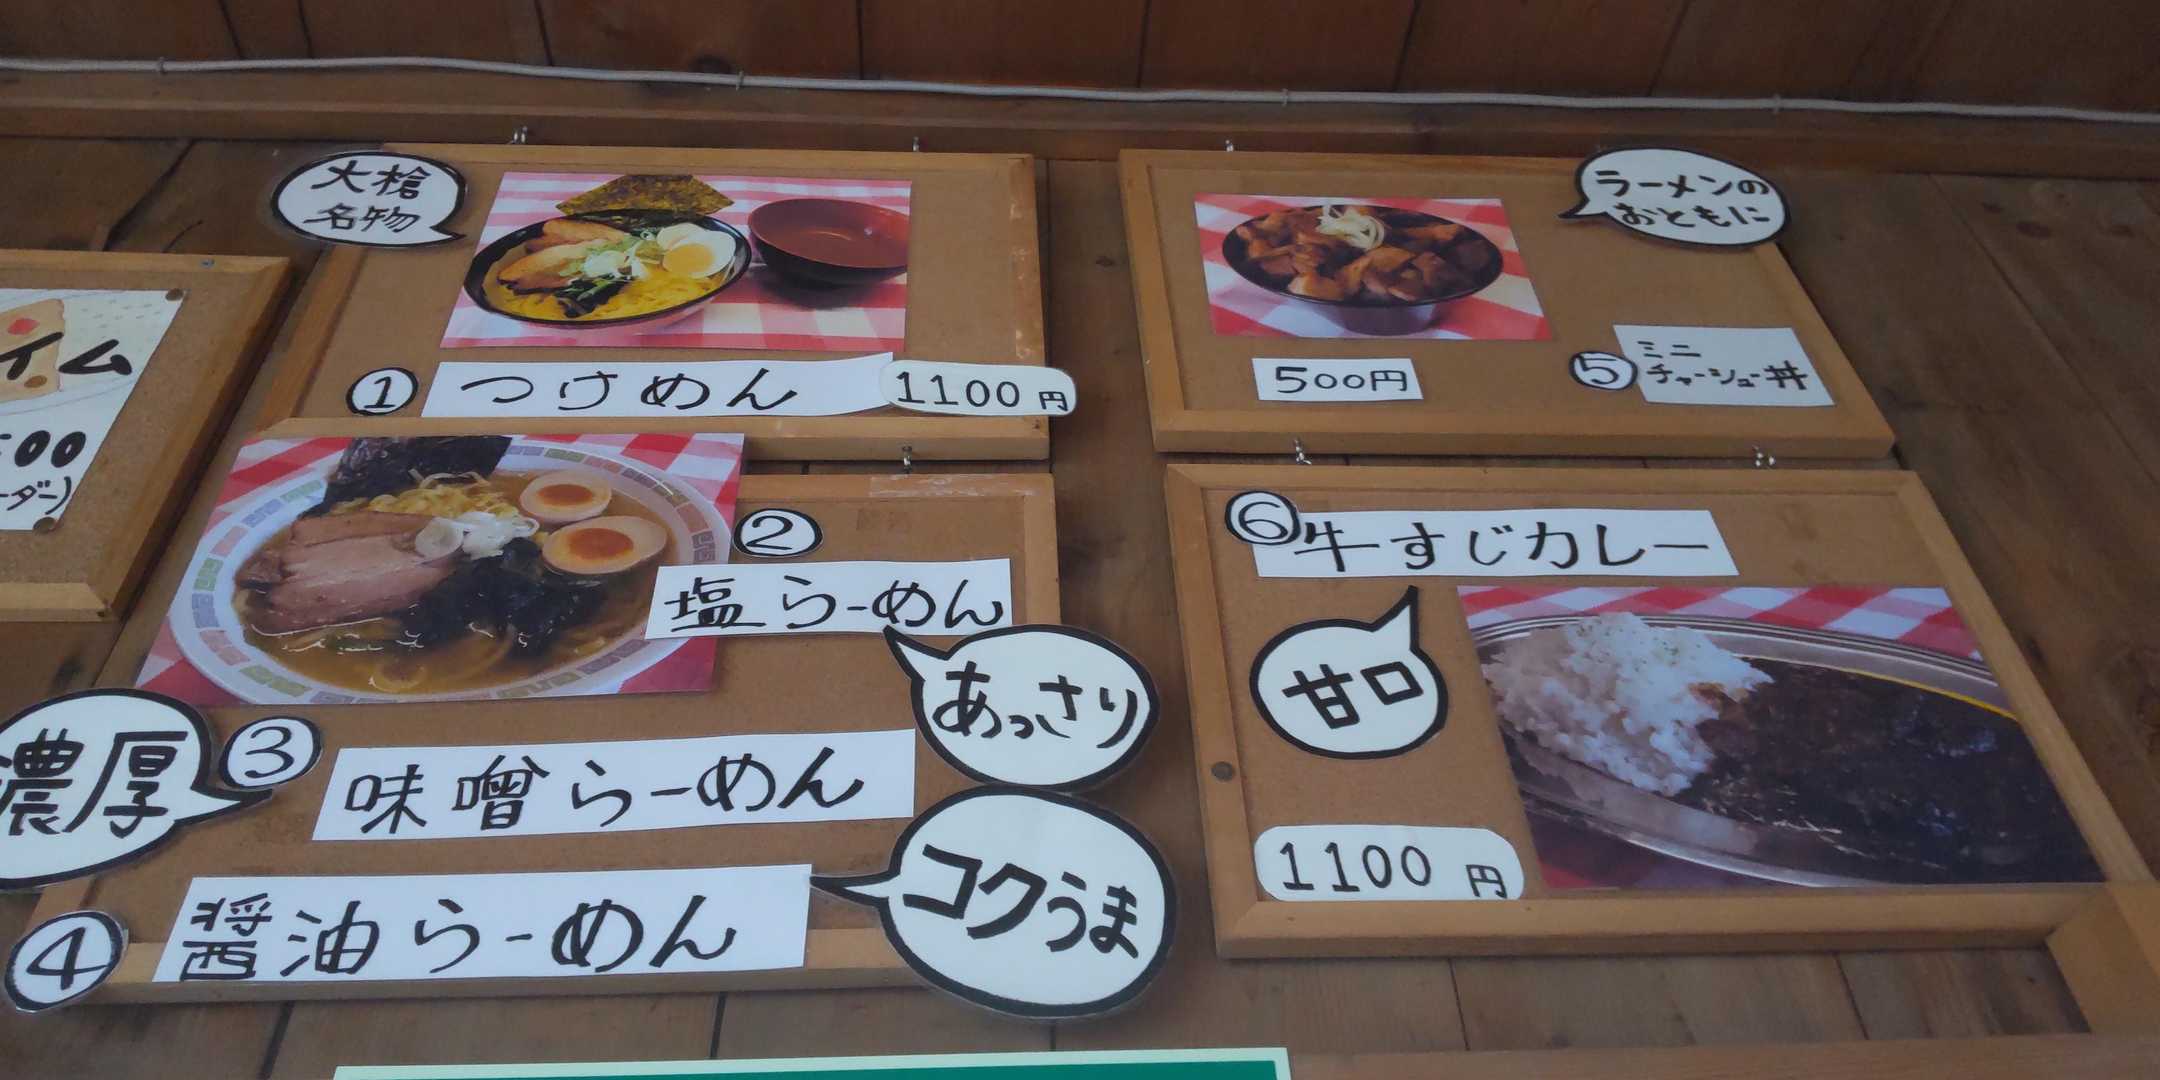 大槍
名物
① つけめん 1100円
ラーメンの
おともに
500円
⑤ ミニ
チャーシュー丼
イム
00
ーダー)
② 塩らーめん
あっさり
濃厚
③ 味噌らーめん
④ 醤油らーめん
コクうま
⑥ 牛すじカレー
甘口
1100円